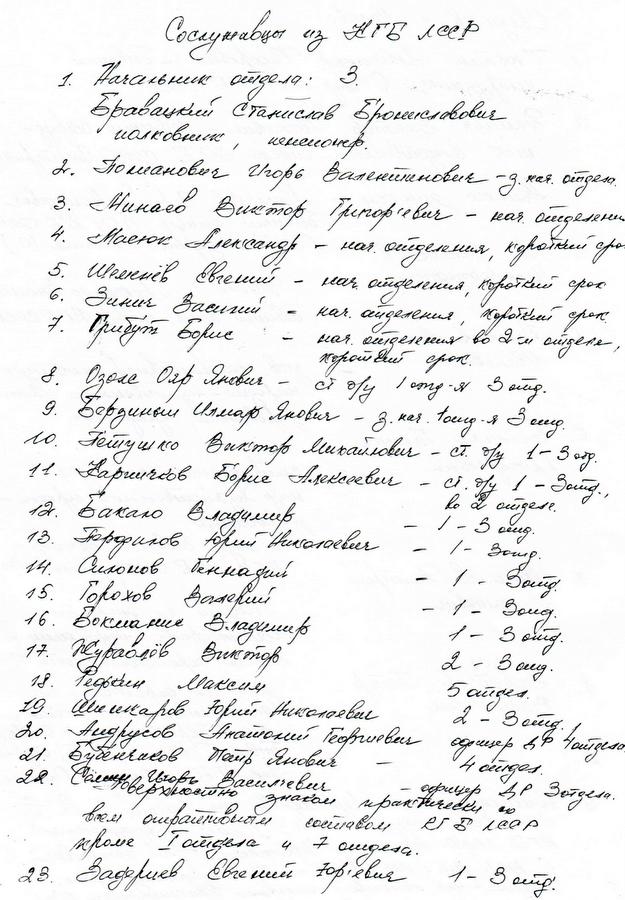 Сослуживцы из КГБ ЛССР
1. Начальник отдела: 3.
Бравацкий Станислав Брониславович
полковник, пенсионер.
2. Поманович Игорь Валентинович - з. нач. отдела.
3. Минаев Виктор Григорьевич - нач. отделения
4. Масюк Александр - нач. отделения, короткий сро
5. Евгений - нач. отделения, короткий срок
6. Зинич Василий - нач. отделения, короткий срок.
7. Грибут Борис - нач. отделения во 2-м отделе,
короткий срок.
8. Озолс Ояр Янович - ст о/у 1 отд-я 3 отд.
9. Бердиньш Илмар Янович - з. нач. 1 отд-я 3 отд.
10. Петушко Виктор Михайлович - ст. о/у 1 - 3 отд.
11. Борис Алексеевич - ст. о/у 1 - 3 отд.,
во 2 отделе.
12. Бакало Владимир - 1 - 3 отд.
13. Юрий Николаевич - 1 - 3 отд.
14. Геннадий - 1 - 3 отд
15. Горохов Валерий - 1 - 3 отд.
16. Владимир 1 - 3 отд.
17. Журавлёв Виктор 2 - 3 отд.
18. Редькин Максим 5 отдел.
19. Юрий Николаевич 2 - 3 отд.
20. Андрусов Анатолий Георгиевич офицер ДР 4 отдела
21. Бубенчиков Пётр Янович - 4 отдел.
22. Игорь Васильевич - офицер ДР 3 отдела.
Поверхностно знаком практически со
всем оперативным составом КГБ ЛССР
кроме I отдела и 7 отдела.
23. Задериев Евгений Юрьевич 1 - 3 отд.